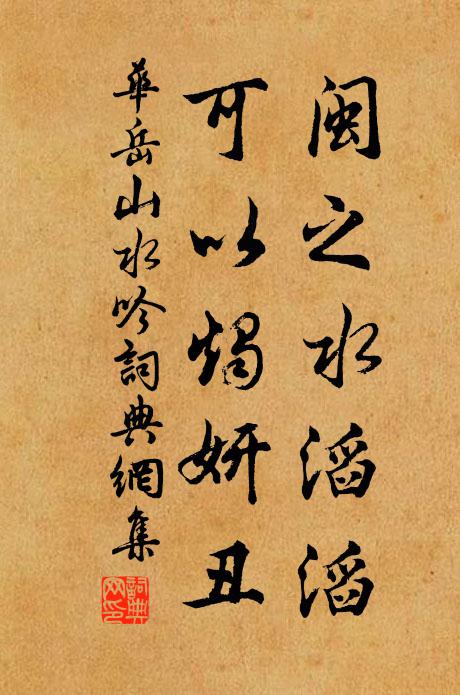 闽之水滔滔
可以燭妍丑
華岳山水吟詞典網集
詞典
网印